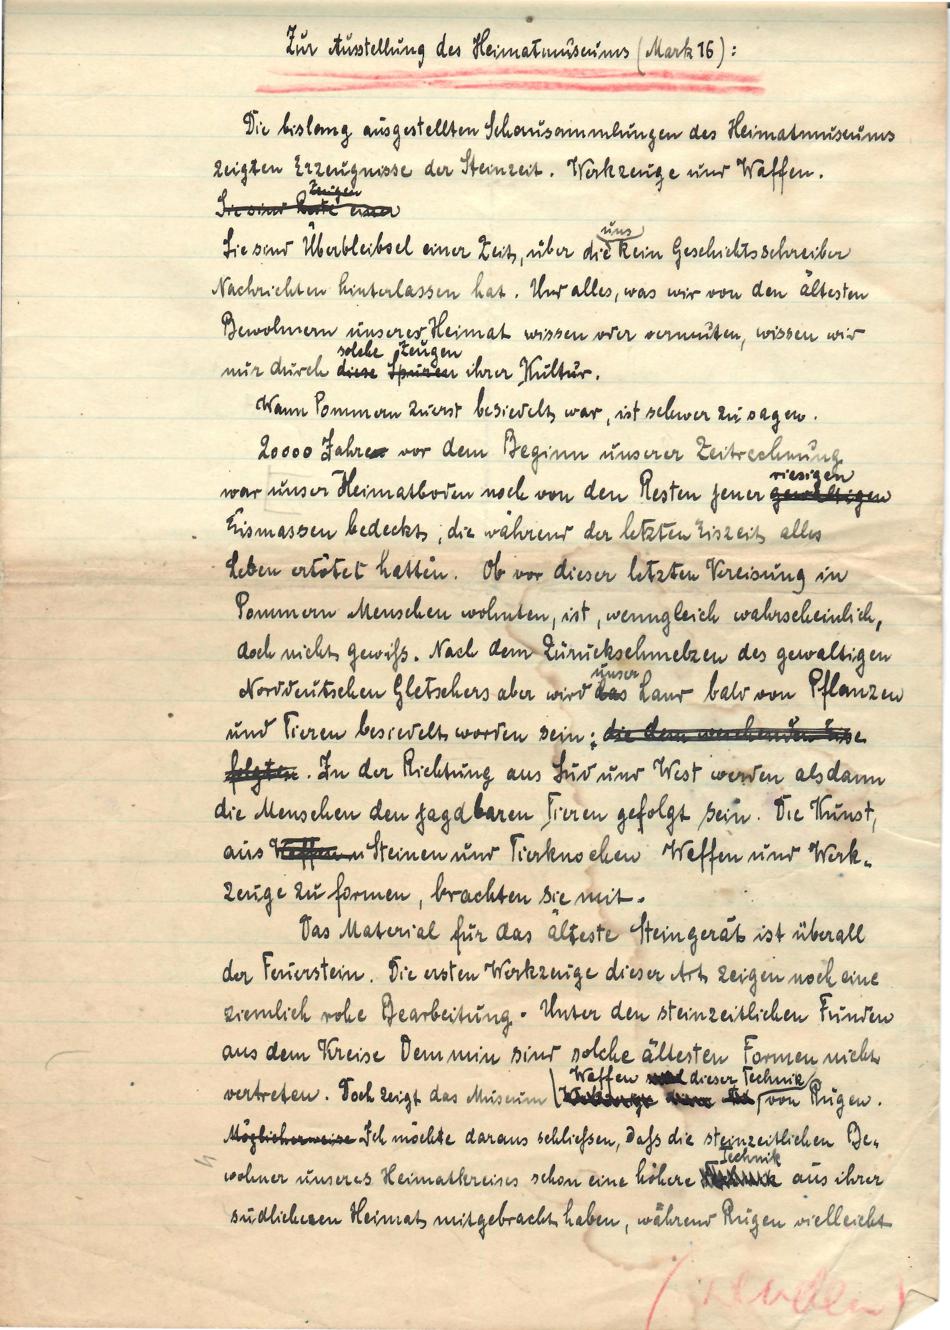 Zur Ausstellung des Heimatmuseums (Mark 16):
Die bislang ausgestellten Schausammlungen des Heimatmuseums
zeigten Erzeugnisse der Steinzeit. Werkzeuge und Waffen.
Zeugen
Sie sind Reste einer
uns
Sie sind Überbleibsel einer Zeit, über die kein Geschichtsschreiber
Nachrichten hinterlassen hat. Und alles, was wir von den ältesten
Bewohnern unserer Heimat wissen oder vermuten, wissen wir
solche Zeugen
nur durch diese Spuren ihrer Kultur.
Wann Pommern zuerst besiedelt war, ist schwer zu sagen.
20000 Jahre vor dem Beginn unserer Zeitrechnung
riesigen
war unser Heimatboden noch von den Resten jener gewaltigen
Eismassen bedeckt, die während der letzten Eiszeit alles
Leben ertötet hatten. Ob vor dieser letzten Vereisung in
Pommern Menschen wohnten, ist, wenngleich wahrscheinlich,
doch nicht gewiß. Nach dem Zurückschmelzen des gewaltigen
unser
Norddeutschen Gletschers aber wird das Land bald von Pflanzen
und Tieren besiedelt worden sein; die dem weichenden Eise
folgten. In der Richtung aus Süd und West werden alsdann
die Menschen den jagdbaren Tieren gefolgt sein. Die Kunst,
aus Waffen u Steinen und Tierknochen Waffen und Werk-
zeuge zu formen, brachten sie mit.
Das Material für das älteste Steingerät ist überall
der Feuerstein. Die ersten Werkzeuge dieser Art zeigen noch eine
ziemlich rohe Bearbeitung. Unter den steinzeitlichen Funden
aus dem Kreise Demmin sind solche ältesten Formen nicht
Waffen dieser Technik
vertreten. Doch zeigt das Museum von Rügen.
Möglicherweise Ich möchte daraus schließen, daß die steinzeitlichen Be-
Technik
wohner unseres Heimatkreises schon eine höhere aus ihrer
südlicheren Heimat mitgebracht haben, während Rügen vielleicht
(wenden)